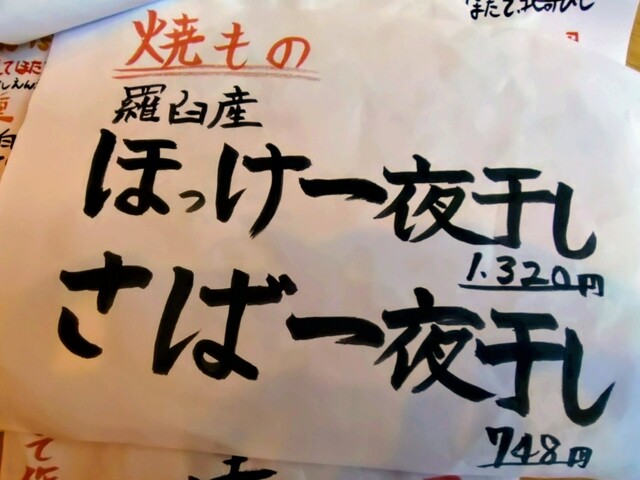 焼もの
羅臼産
ほっけ一夜干し
1.320円
さば一夜干し
748円